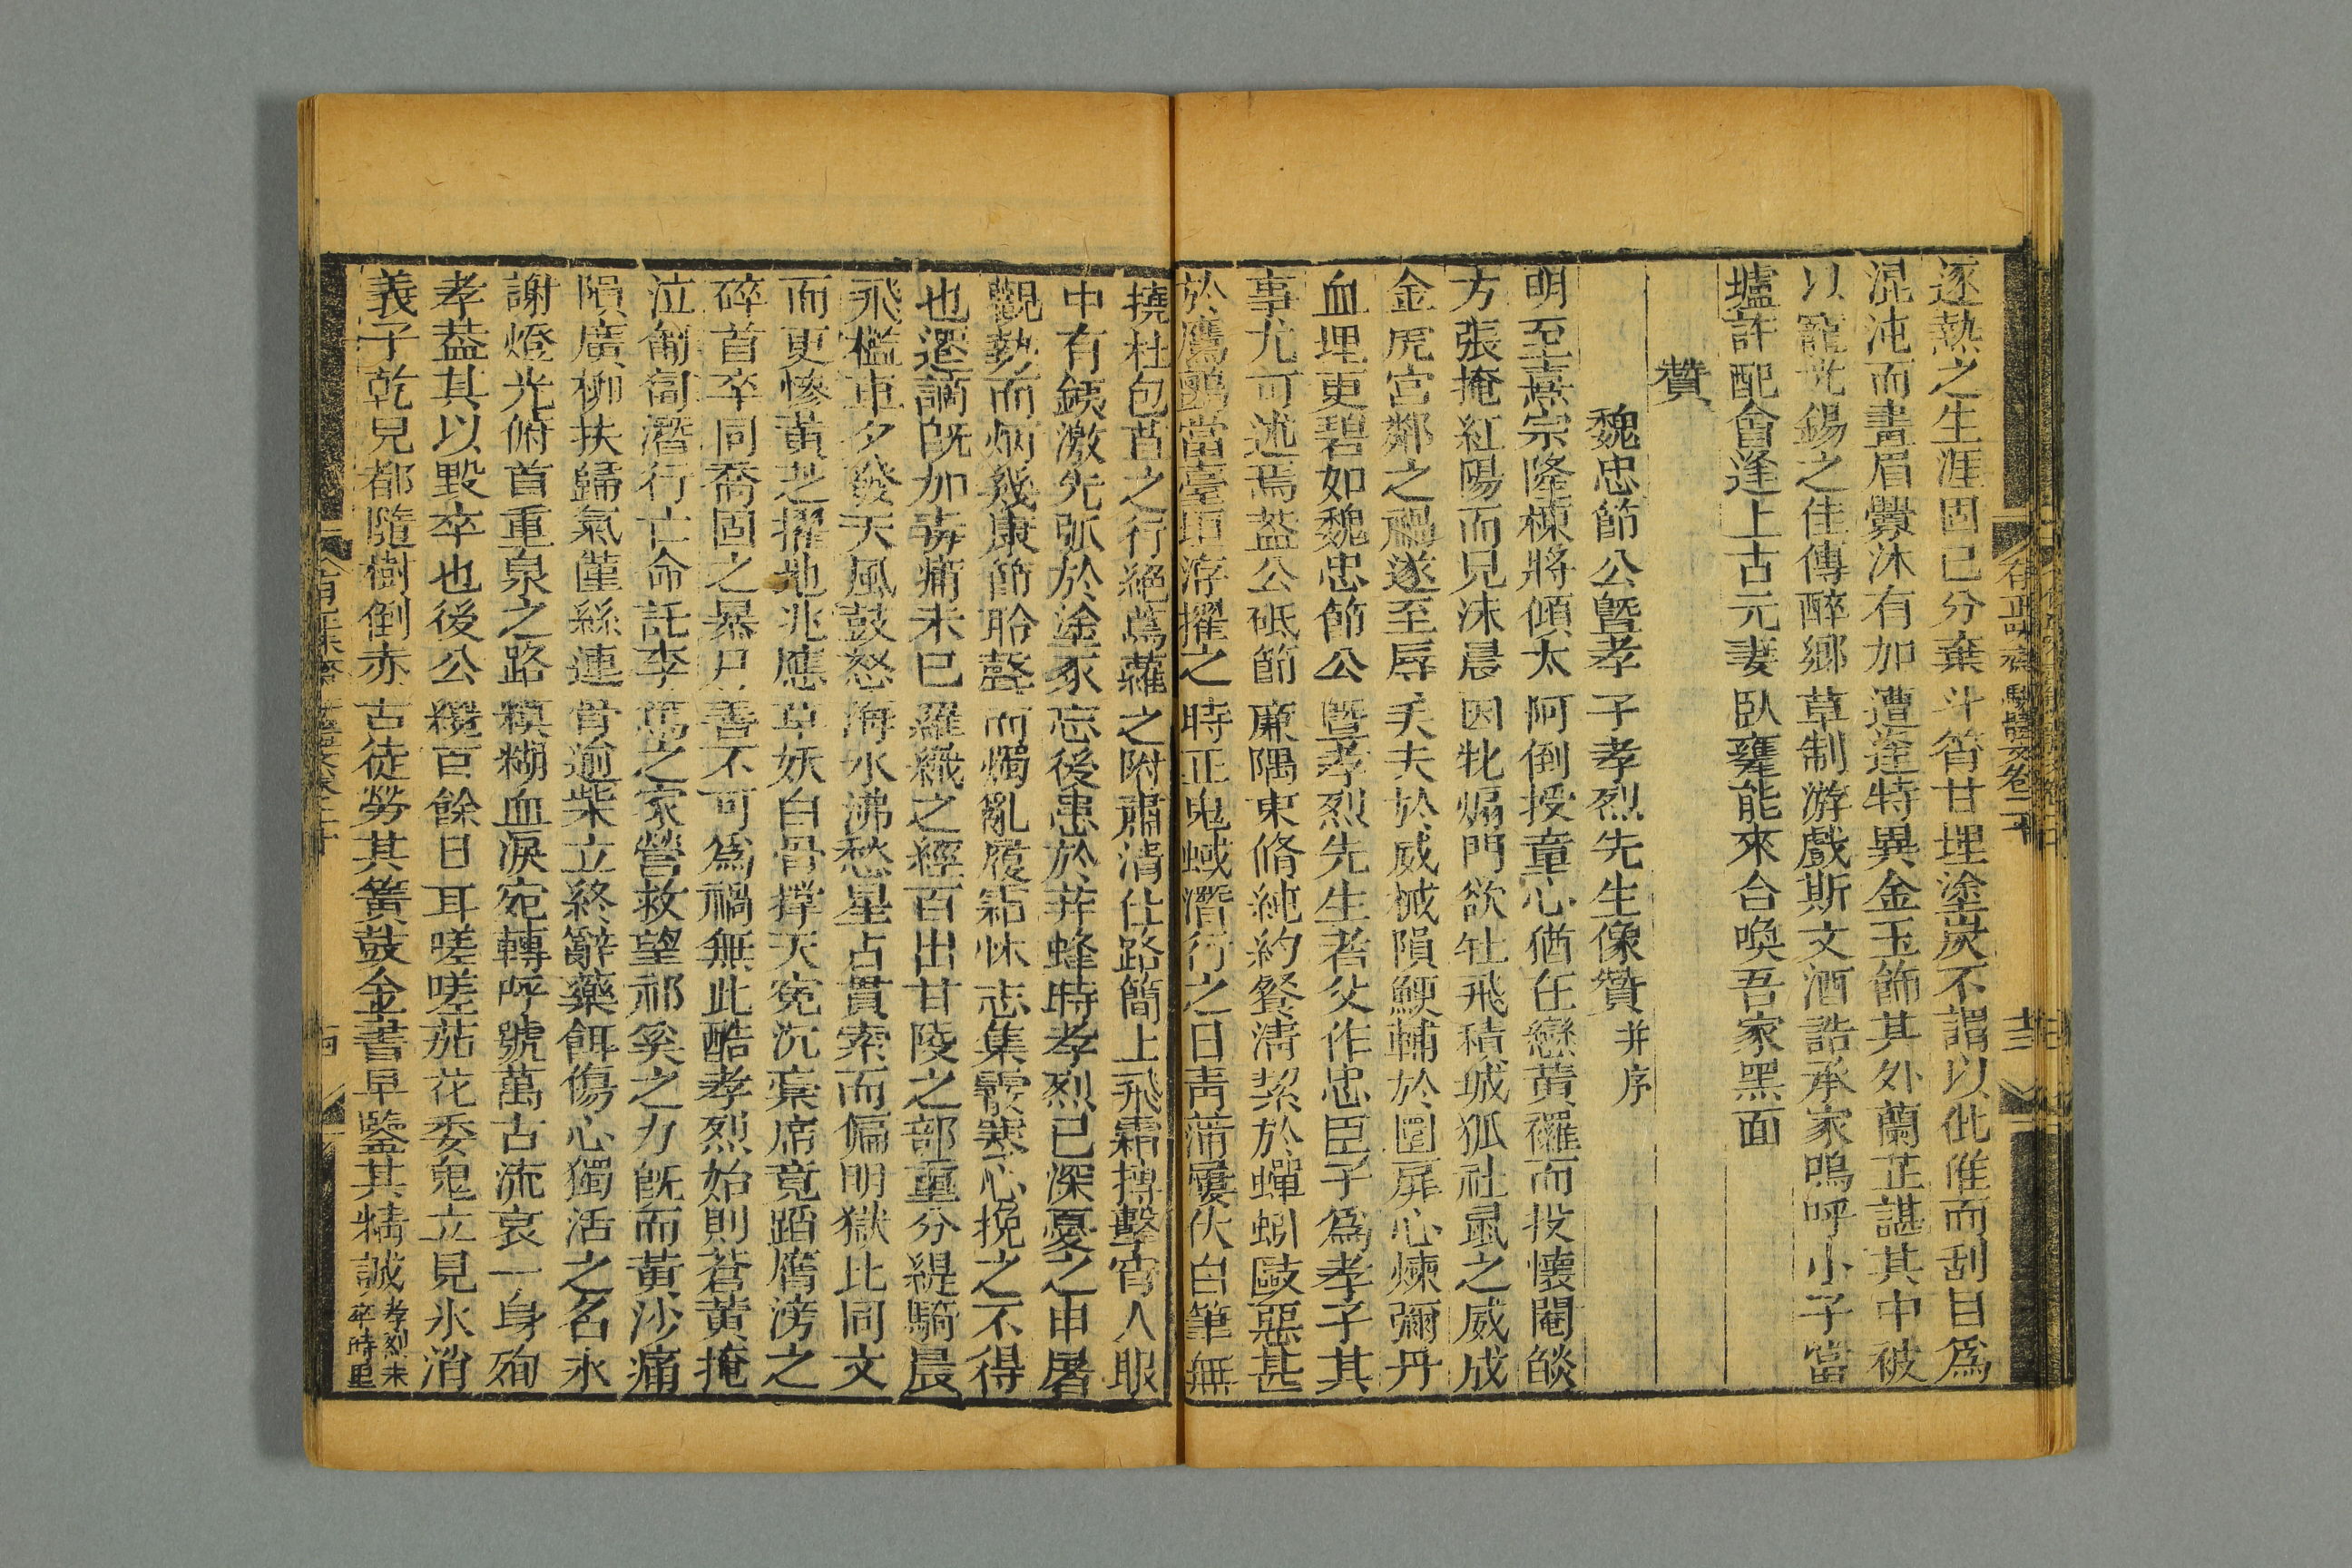 逐熱之生涯固已分棄斗筲甘埋塗炭不謂以此惟而刮目爲
混沌而畫眉釁沐有加遭逢特異金玉飾其外蘭芷諶其中被
以寵光錫之佳傳醉鄉草制游戲斯文酒誥承家嗚呼小子當
壚許配會逢上古元妻臥甕能來合喚吾家黑面
贊
魏忠節公曁孝子孝烈先生像贊并序
明至熹宗隆棟將傾太阿倒授童心猶在戀黃襬而投懷閹燄
方張掩紅陽而兄沫晨因牝煽門欲牡飛積城狐社鼠之威成
金虎宮鄰之禍遂至辱夫夫於威械隕鯁輔於圜扉心煉彌丹
血埋更碧如魏忠節公曁孝烈先生者父作忠臣子爲孝子其
事尤可述焉葢公砥節廉隅束脩純約餐淸絜於蟬蚓毆惡甚
於鷹鸇當臺垣游擢之時正鬼蜮潛行之日靑蒲屢伏白筆無
撓杜包苴之行絕蔦蘿之附肅清仕路簡上飛霜摶擊宵人眼
中有鐵激先弧於塗豕忘後患於荓蜂時孝烈已深憂之申屠
觀埶而炳幾康節聆聲而燭亂履霜怵志集霰寒心挽之不得
也遷謫旣加毒痡未已羅織之經百出甘陵之部重分緹騎晨
飛檻車夕發天風鼓怒海水沸愁星占貫索而偏明獄比同文
而更慘黃芝擢地兆應草妖白骨撑天寃沉棄席竟蹈膺滂之
碎首卒同喬固之暴尸善不可爲禍無此酷孝烈始則蒼黃掩
泣匍匐潛行亡命託李篤之家營救望祁奚之力旣而黃沙痛
隕廣柳扶歸氣僅絲連骨逾柴立終辭藥餌傷心獨活之名永
謝燈光俯首重泉之路糢糊血淚宛轉呼號萬古流哀一身殉
孝葢其以毀卒也後公纔百餘日耳嗟嗟茄花委鬼立見氷消
義子乾兒都隨樹倒赤古徒勞其簧鼓金書早鑒其精誠孝烈未卒時里